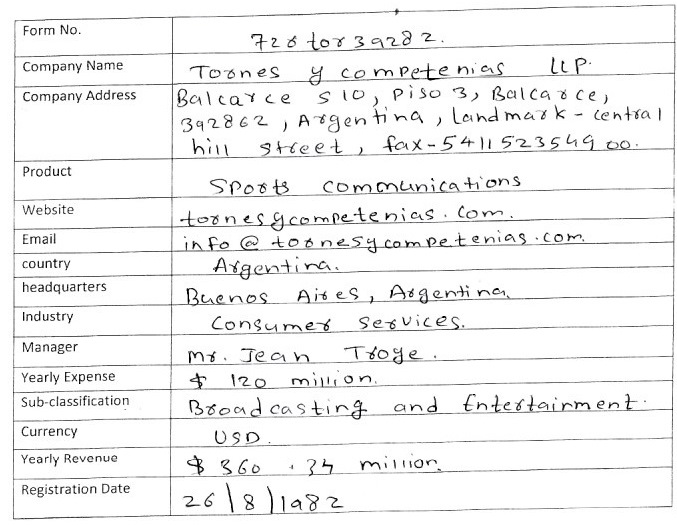 Form No. 726tor39282.
Company Name Tornes y competenias LLP.
Company Address Balcarce 510, Piso 3, Balcarce,
392862, Argentina, Landmark - central
hill street, fax-541152354900.
Product Sports communications
Website tornesycompetenias.com.
Email info@tornesycompetenias.com.
country Argentina.
headquarters Buenos Aires, Argentina.
Industry Consumer services.
Manager Mr. Jean Troge.
Yearly Expense $ 120 million.
Sub-classification Broadcasting and Entertainment.
Currency USD.
Yearly Revenue $ 360.34 million.
Registration Date 26/8/1982